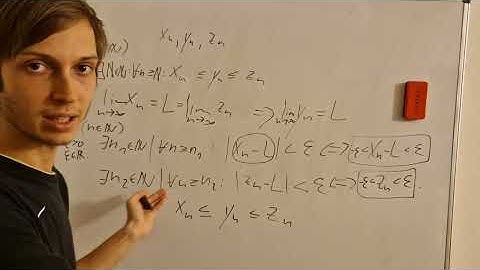 xₙ, yₙ, zₙ
∃N∈ℕ: ∀n≥N: xₙ ≤ yₙ ≤ zₙ
lim n→∞ xₙ = L = lim n→∞ zₙ ⟹ lim n→∞ yₙ = L
(n∈ℕ)
>0 ∃n₁∈ℕ | ∀n≥n₁: |xₙ-L| < ε ⟺ -ε<xₙ-L<ε
ε∈ℝ
∃n₂∈ℕ | ∀n≥n₂: |zₙ-L| < ε ⟺ -ε<zₙ-L<ε.
xₙ ≤ yₙ ≤ zₙ